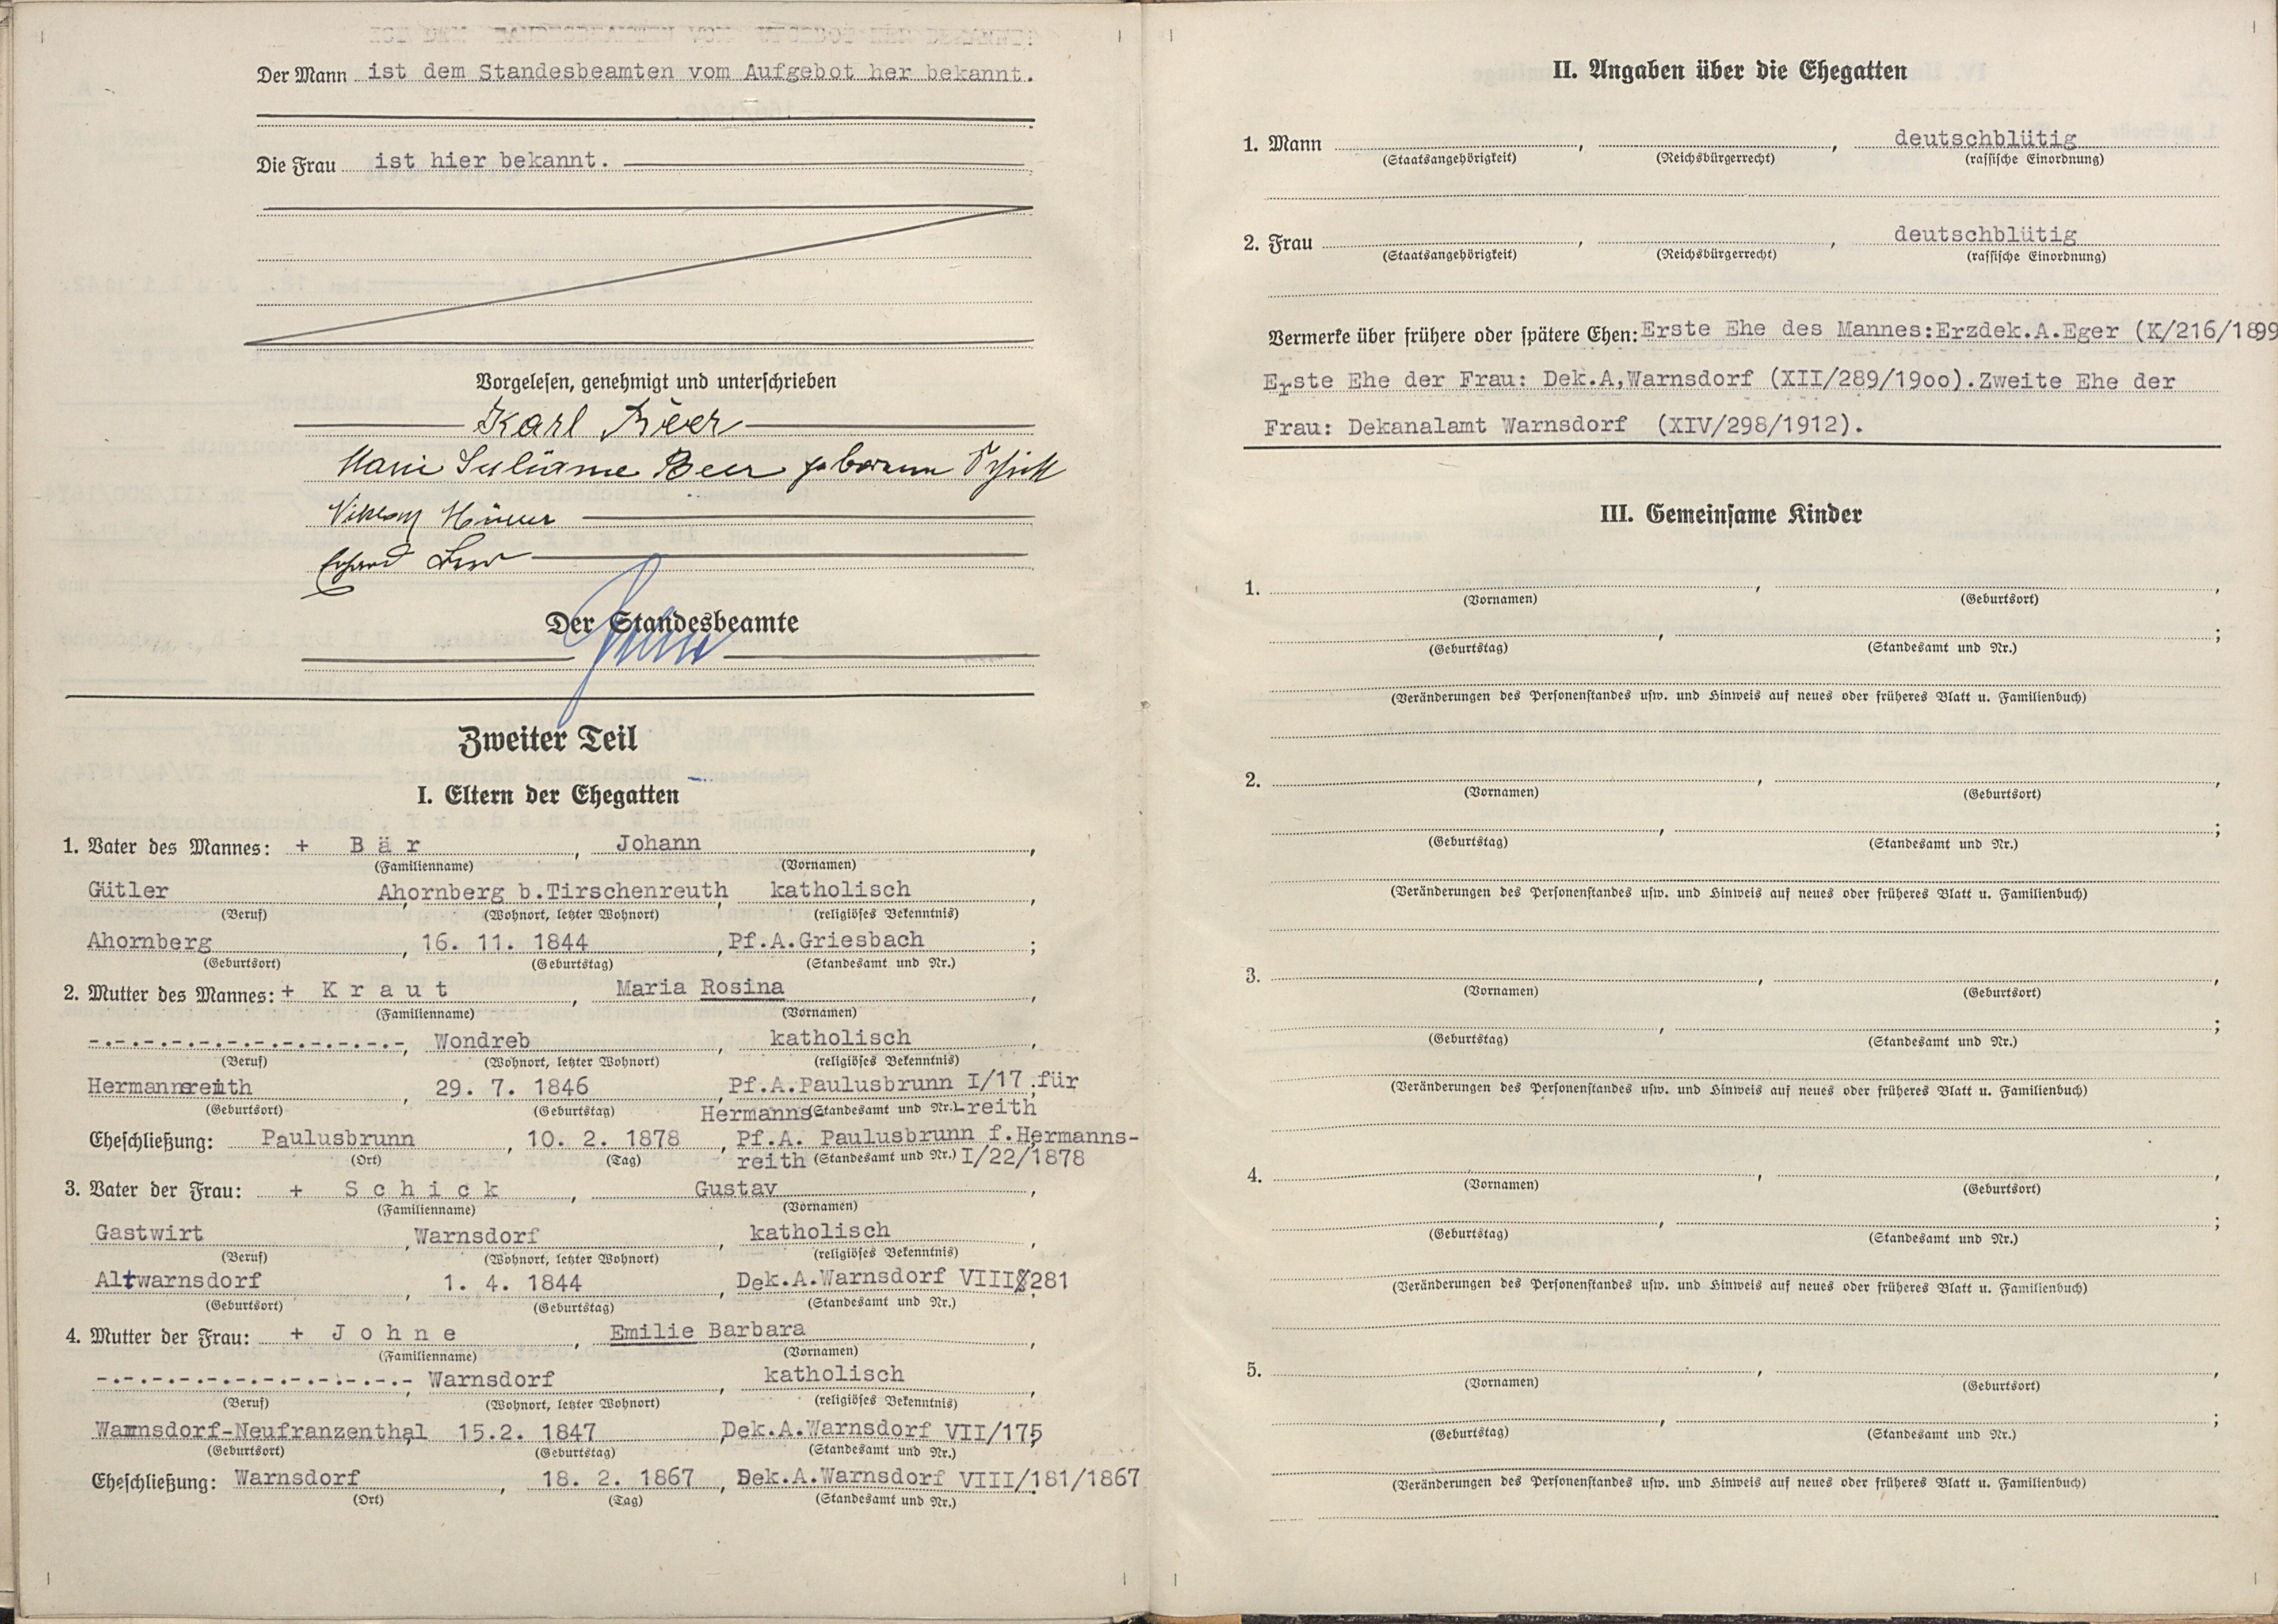 Der Mann ist dem Standesbeamten vom Aufgebot her bekannt.
Die Frau ist hier bekannt.
Vorgelesen, genehmigt und unterschrieben
Karl Beer
Marie Juliane Beer geborene Schick
Erhard
Der Standesbeamte
Zweiter Teil
I. Eltern der Ehegatten
1. Vater des Mannes: + B ä r , Johann ,
(Familienname) (Vornamen)
Gütler , Ahornberg b.Tirschenreuth , katholisch ,
(Beruf) (Wohnort, letzter Wohnort) (religiöses Bekenntnis)
Ahornberg , 16. 11. 1844 , Pf.A.Griesbach ;
(Geburtsort) (Geburtstag) (Standesamt und Nr.)
2. Mutter des Mannes: + K r a u t , Maria Rosina ,
(Familienname) (Vornamen)
-.-.-.-.-.-.-.-.-.-.-.-, Wondreb , katholisch ,
(Beruf) (Wohnort, letzter Wohnort) (religiöses Bekenntnis)
Hermannsreith , 29. 7. 1846 , Pf.A.Paulusbrunn I/17 ; für
(Geburtsort) (Geburtstag) Hermanns- (Standesamt und Nr.) -reith
Eheschließung: Paulusbrunn , 10. 2. 1878 , Pf.A. Paulusbrunn f.Hermanns-
(Ort) (Tag) reith (Standesamt und Nr.) I/22/1878
3. Vater der Frau: + S c h i c k , Gustav ,
(Familienname) (Vornamen)
Gastwirt , Warnsdorf , katholisch ,
(Beruf) (Wohnort, letzter Wohnort) (religiöses Bekenntnis)
Altwarnsdorf , 1. 4. 1844 , Dek.A.Warnsdorf VIII/281
(Geburtsort) (Geburtstag) (Standesamt und Nr.)
4. Mutter der Frau: + J o h n e , Emilie Barbara ,
(Familienname) (Vornamen)
-.-.-.-.-.-.-.-.-.-.-.-, Warnsdorf , katholisch ,
(Beruf) (Wohnort, letzter Wohnort) (religiöses Bekenntnis)
Warnsdorf-Neufranzenthal , 15.2. 1847 , Dek.A.Warnsdorf VII/175
(Geburtsort) (Geburtstag) (Standesamt und Nr.)
Eheschließung: Warnsdorf , 18. 2. 1867 , Dek.A.Warnsdorf VIII/181/1867
(Ort) (Tag) (Standesamt und Nr.)
II. Angaben über die Ehegatten
1. Mann , , deutschblütig
(Staatsangehörigkeit) (Reichsbürgerrecht) (rassische Einordnung)
2. Frau , , deutschblütig
(Staatsangehörigkeit) (Reichsbürgerrecht) (rassische Einordnung)
Vermerke über frühere oder spätere Ehen: Erste Ehe des Mannes:Erzdek.A.Eger (K/216/1899
Erste Ehe der Frau: Dek.A,Warnsdorf (XII/289/19oo).Zweite Ehe der
Frau: Dekanalamt Warnsdorf (XIV/298/1912).
III. Gemeinsame Kinder
1. , ,
(Vornamen) (Geburtsort)
, ;
(Geburtstag) (Standesamt und Nr.)
(Veränderungen des Personenstandes usw. und Hinweis auf neues oder früheres Blatt u. Familienbuch)
2. , ,
(Vornamen) (Geburtsort)
, ;
(Geburtstag) (Standesamt und Nr.)
(Veränderungen des Personenstandes usw. und Hinweis auf neues oder früheres Blatt u. Familienbuch)
3. , ,
(Vornamen) (Geburtsort)
, ;
(Geburtstag) (Standesamt und Nr.)
(Veränderungen des Personenstandes usw. und Hinweis auf neues oder früheres Blatt u. Familienbuch)
4. , ,
(Vornamen) (Geburtsort)
, ;
(Geburtstag) (Standesamt und Nr.)
(Veränderungen des Personenstandes usw. und Hinweis auf neues oder früheres Blatt u. Familienbuch)
5. , ,
(Vornamen) (Geburtsort)
, ;
(Geburtstag) (Standesamt und Nr.)
(Veränderungen des Personenstandes usw. und Hinweis auf neues oder früheres Blatt u. Familienbuch)